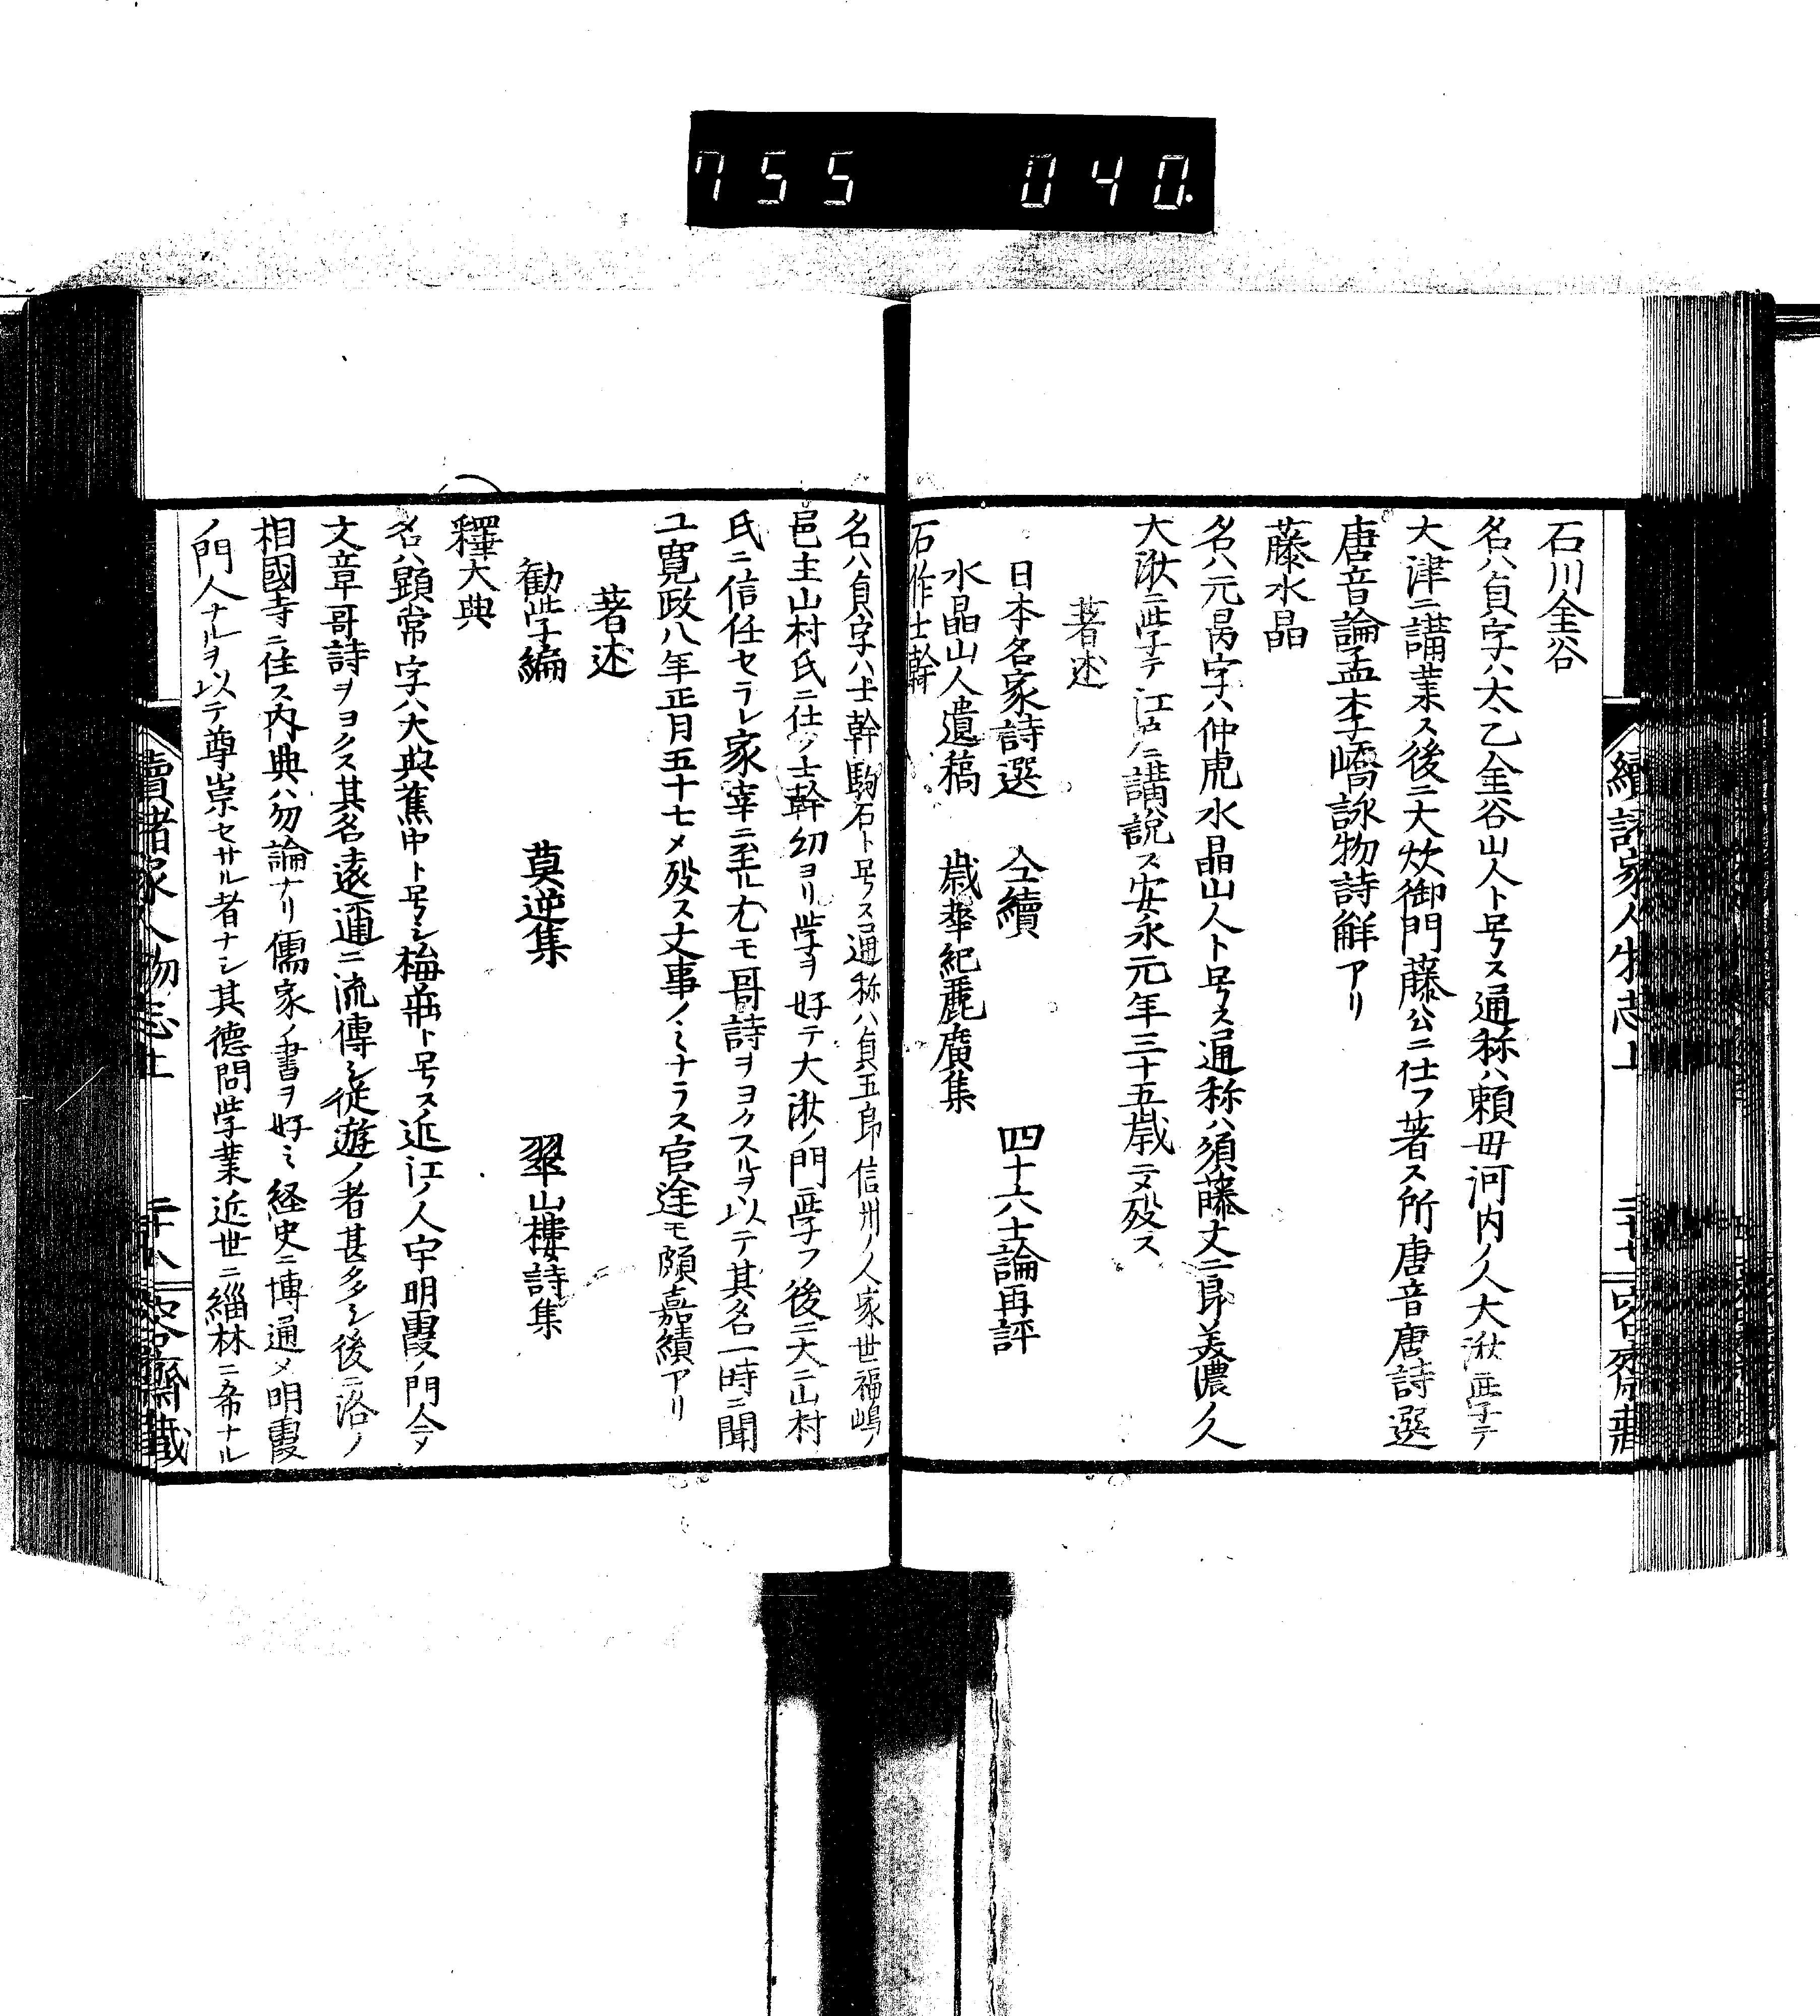 755 040.
石川金谷
名ハ貞字ハ太乙金谷山人ト号ス通称ハ頼母河内ノ人大湫ニ学テ
大津ニ講業ス後ニ大炊御門藤公ニ仕フ著ス所唐音唐詩選
唐音論孟李嶠詠物詩解アリ
藤水晶
名ハ元昺字ハ仲虎水晶山人ト号ス通称ハ須藤丈二郎美濃ノ人
大湫ニ学テ江戸ニ講説ス安永元年三十五歳ニメ歿ス
著述
日本名家詩選 仝續 四十六士論再評
水晶山人遺稿 歳華紀麗廣集
石作士幹
名ハ貞字ハ士幹駒石ト号ス通称ハ貞五郎信州ノ人家世福嶋ノ
邑主山村氏ニ仕フ士幹幼ヨリ学ヲ好テ大湫ノ門ニ学フ後ニ大ニ山村
氏ニ信任セラレ家宰ニ至ル尤モ哥詩ヲヨクスルヲ以テ其名一時ニ聞
ユ寛政八年正月五十七メ歿ス丈事ノミナラス官途モ頗嘉績アリ
著述
勧学編 莫逆集 翠山樓詩集
釋大典
名ハ顕常字ハ大典蕉中ト号シ梅荘ト号ス近江ノ人宇明霞ノ門今メ
文章哥詩ヲヨクス其名遠邇ニ流傳シ従遊ノ者甚多シ後ニ洛ノ
相國寺ニ住ス内典ハ勿論ナリ儒家ノ書ヲ好ミ経史ニ博通メ明霞
ノ門人ナルヲ以テ尊崇セサル者ナシ其德問学業近世ニ緇林ニ希ナル
續諸家人物志上 二十八